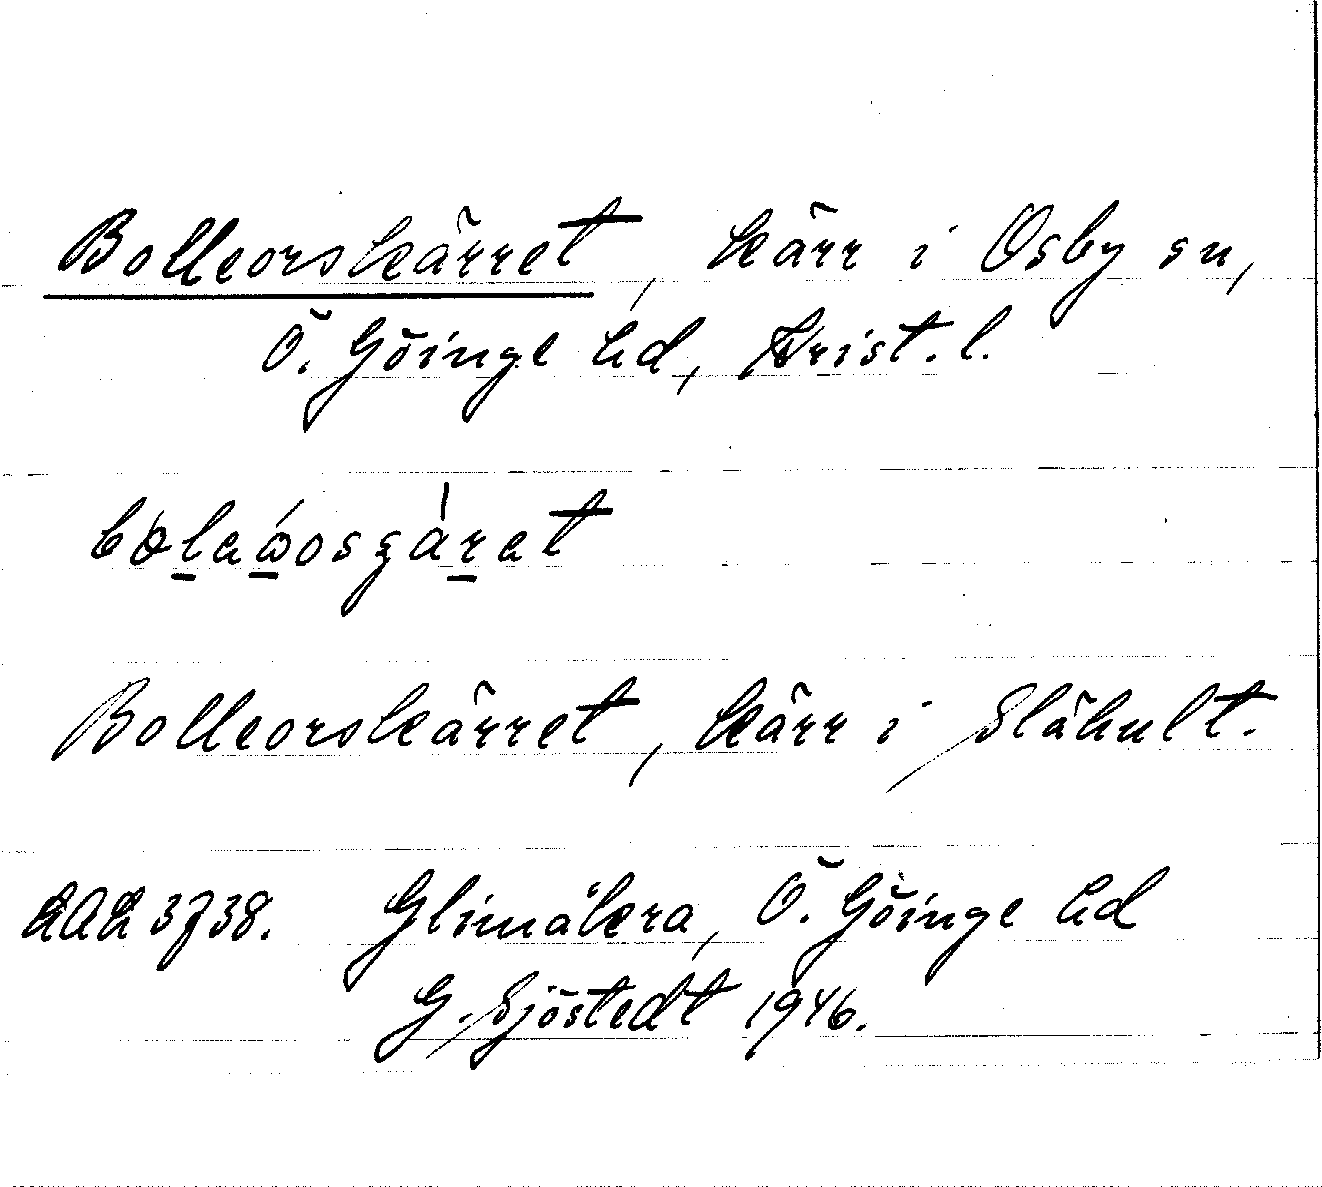 Bolleorskärret, kärr i Osby sn,
Ö. Göinge hd, Krist. l.
Bolleorskärret, kärr i Slähult.
LAL 3738. Glimåkra, Ö. Göinge hd
G. Sjöstedt 1946.